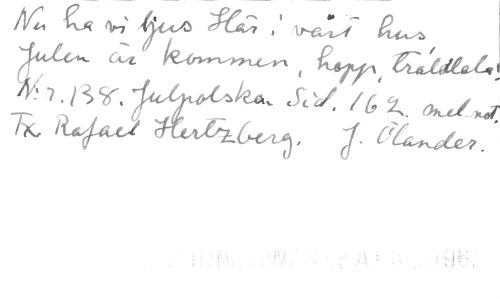 Nu ha vi ljus Här i vårt hus
Julen är kommen, hopp, tralllala!
N:r. 138. Julpolska. Sid. 162. mel. not.
Tx Rafael Hertzberg. J. Ölander.